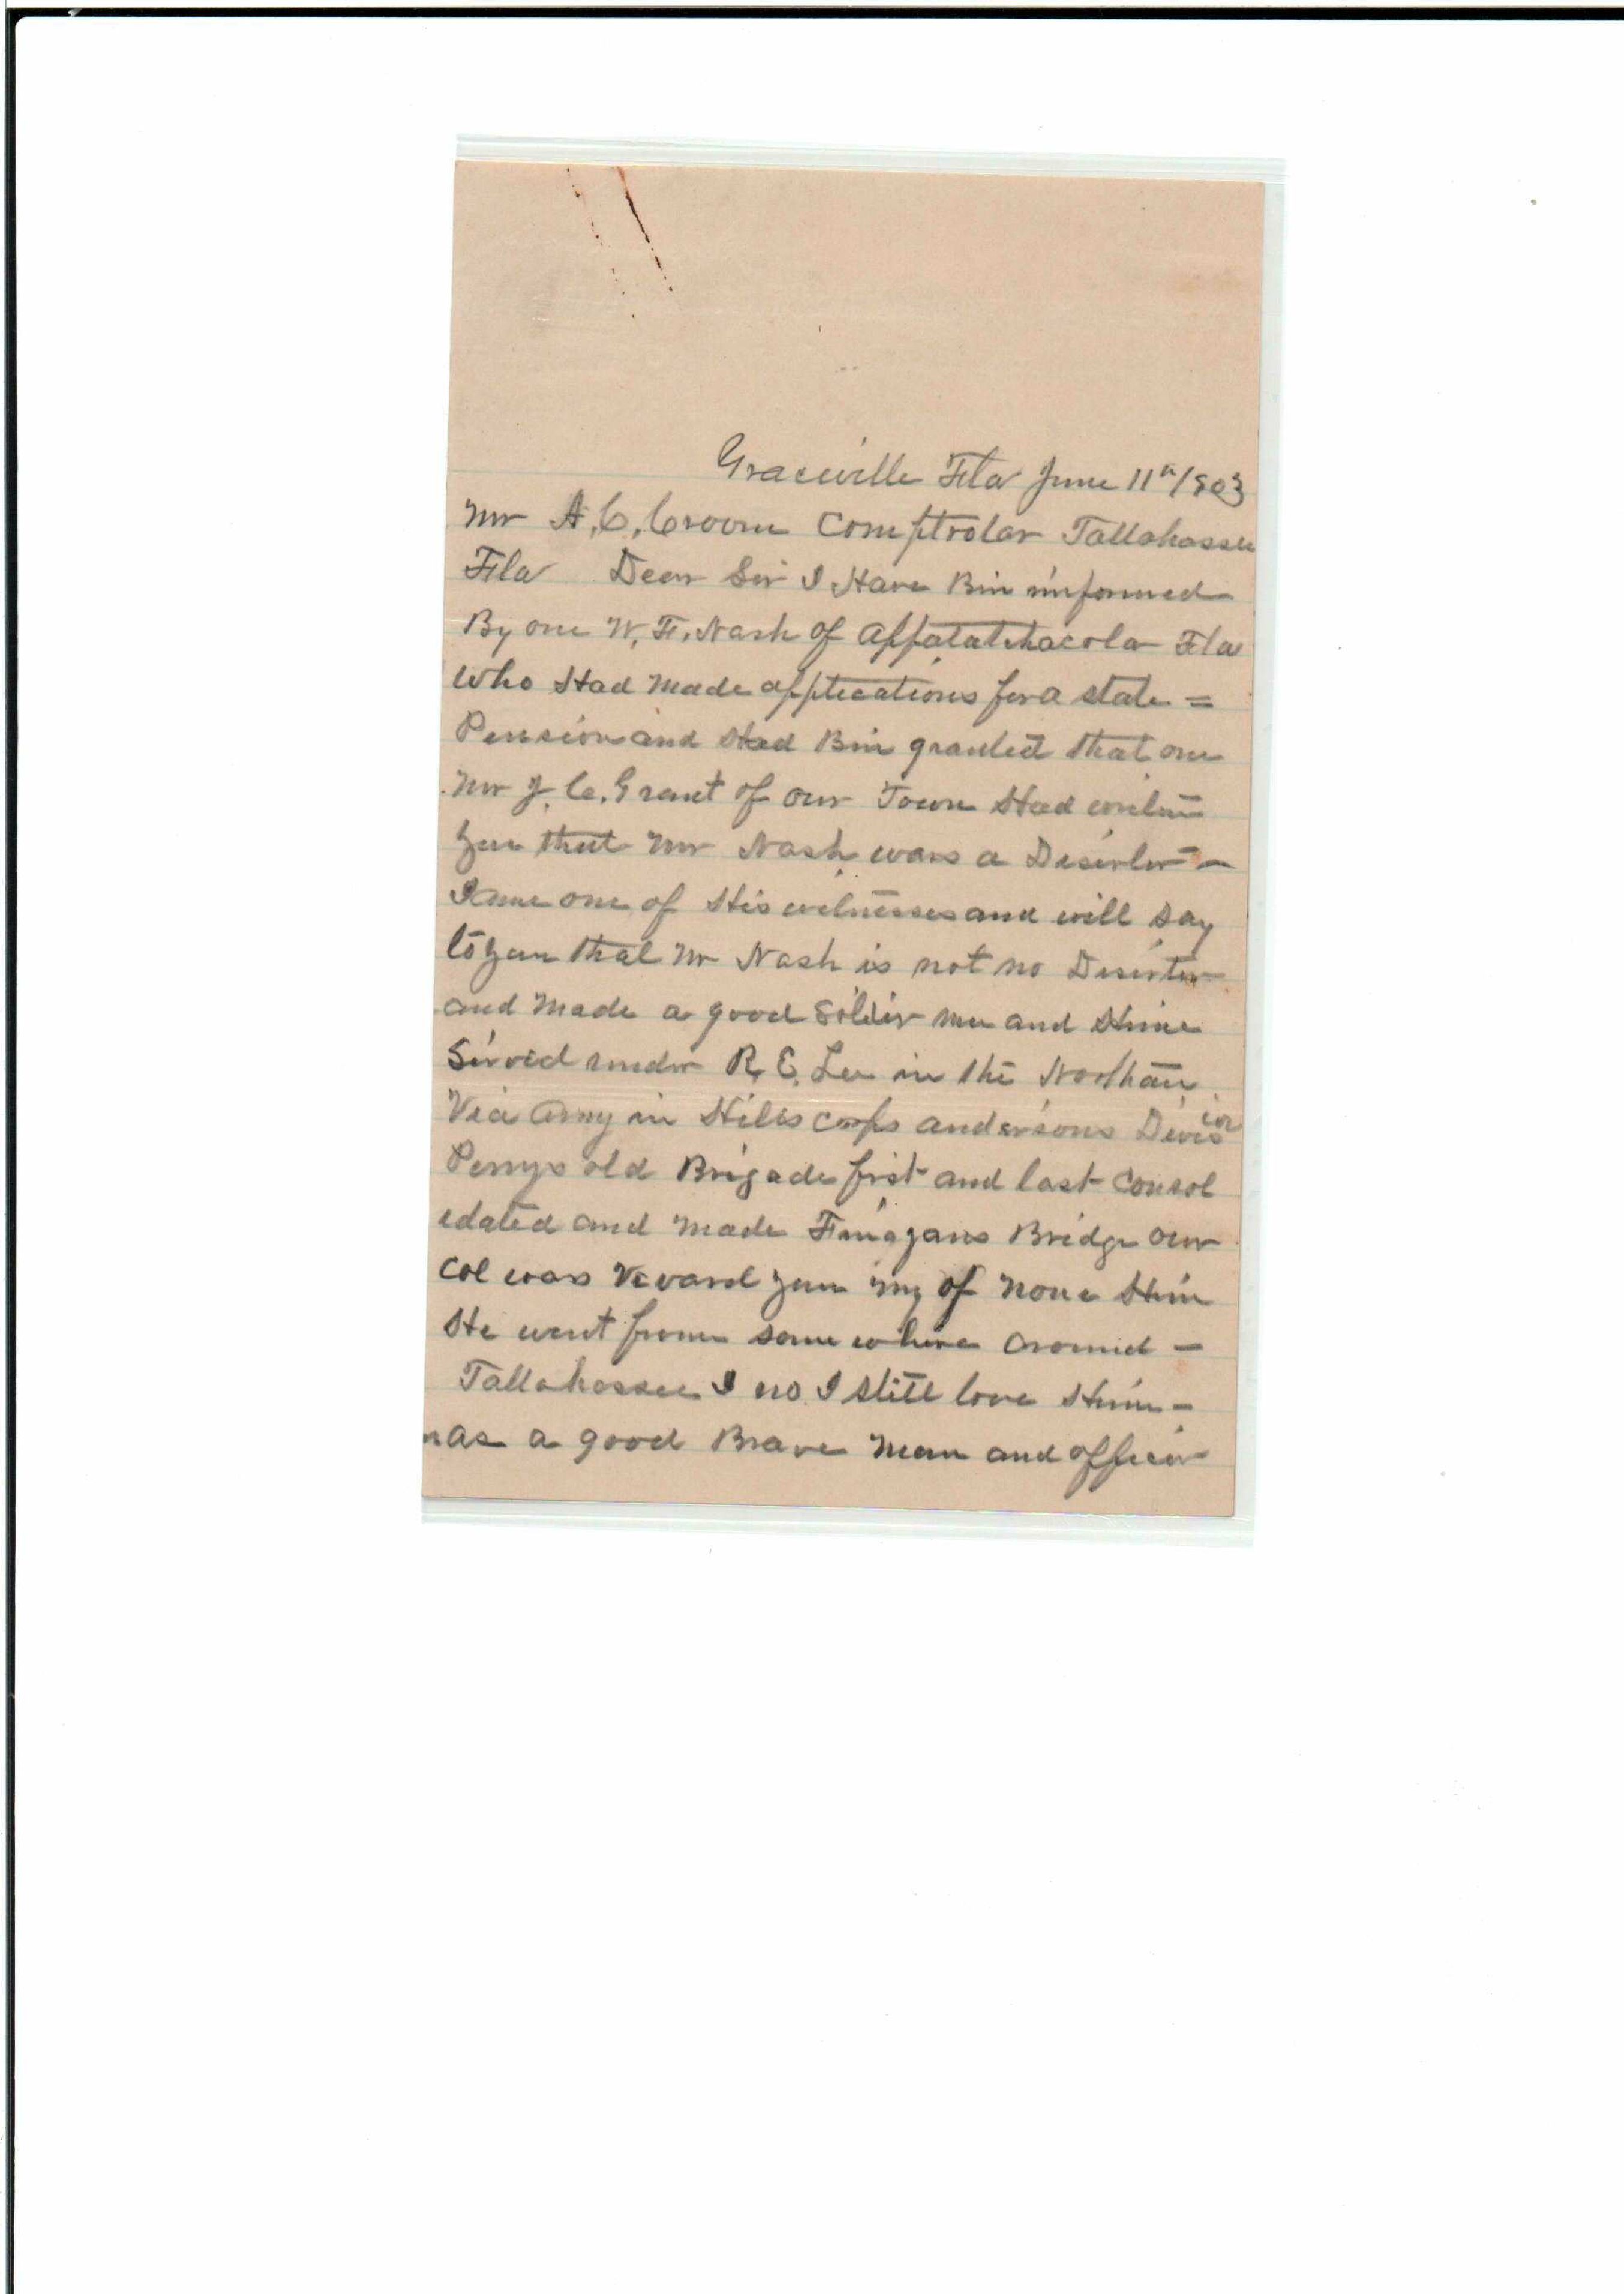 Graceville Fla June 11th/903
Mr A. C. Croom Comptrolar Tallahassee
Fla Dear Sir I Have Bin imformed
By one W. F. Nash of Appalatchacola Fla
Who Had Made applications for a state =
Pension and Had Bin granted that one
Mr J. C. Grant of our Town Had writen
you that Mr Nash was a Deserter -
I ame one of His witnesses and will say
to you that Mr Nash is not no Deserter
and Made a good Soldier me and Hime
Served under R. E. Lee in the Northan
Via Army in Hills corps andersons Division
Perrys old Brigade first and last consol
edated and made Finagans Bridge our
col was you my of none Him
He went from some where around -
Tallahassee I no I still love Him -
as a good Brave Man and officer